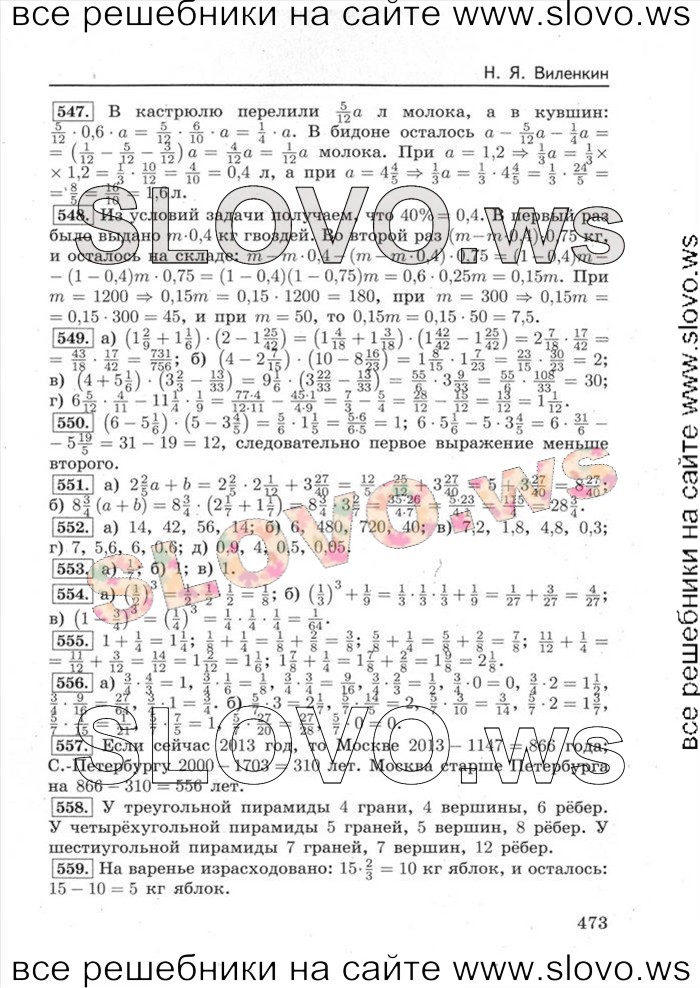 все решебники на сайте www.slovo.ws
Н. Я. Виленкин
547. В кастрюлю перелили 5/12 a л молока, а в кувшин:
5/12 · 0,6 · a = 5/12 · 6/10 · a = 1/4 · a. В бидоне осталось a − 5/12 a − 1/4 a =
= (1/12 − 5/12 − 3/12) a = 4/12 a = 1/12 a молока. При a = 1,2 ⇒ 1/3 a = 1/3 ×
× 1,2 = 1/3 · 10/12 = 4/10 = 0,4 л, а при a = 4 4/5 ⇒ 1/3 a = 1/3 · 4 4/5 = 1/3 · 24/5 =
= 8/5 = 16/10 = 1,6 л.
548. Из условий задачи получаем, что 40% = 0,4. В первый раз
было выдано m·0,4 кг гвоздей. Во второй раз (m−m·0,4)·0,75 кг,
и осталось на складе: m − m · 0,4 − (m − m · 0,4) · 0,75 = (1 − 0,4)m −
− (1 − 0,4)m · 0,75 = (1 − 0,4)(1 − 0,75)m = 0,6 · 0,25m = 0,15m. При
m = 1200 ⇒ 0,15m = 0,15 · 1200 = 180, при m = 300 ⇒ 0,15m =
= 0,15 · 300 = 45, и при m = 50, то 0,15m = 0,15 · 50 = 7,5.
549. а) (1 2/9 + 1 1/6) · (2 − 1 25/42) = (1 4/18 + 1 3/18) · (1 42/42 − 1 25/42) = 2 7/18 · 17/42 =
= 43/18 · 17/42 = 731/756; б) (4 − 2 7/15) · (10 − 8 16/23) = 1 8/15 · 1 7/23 = 23/15 · 30/23 = 2;
в) (4 + 5 1/6) · (3 2/3 − 13/33) = 9 1/6 · (3 22/33 − 13/33) = 55/6 · 3 9/33 = 55/6 · 108/33 = 30;
г) 6 5/12 · 4/11 − 11 1/4 · 1/9 = 77·4/12·11 − 45·1/4·9 = 7/3 − 5/4 = 28/12 − 15/12 = 13/12 = 1 1/12.
550. (6 − 5 1/6) · (5 − 3 4/5) = 5/6 · 1 1/5 = 5·6/6·5 = 1; 6 · 5 1/6 − 5 · 3 4/5 = 6 · 31/6 −
− 5 19/5 = 31 − 19 = 12, следовательно первое выражение меньше
второго.
551. а) 2 2/5 a + b = 2 2/5 · 2 1/12 + 3 27/40 = 12/5 · 25/12 + 3 27/40 = 5 + 3 27/40 = 8 27/40;
б) 8 3/4 (a + b) = 8 3/4 · (2 1/7 + 1 1/7) = 8 3/4 · 3 2/7 = 35·26/4·7 = 5·23/4·1 = 115/4 = 28 3/4.
552. а) 14, 42, 56, 14; б) 6, 480, 720, 40; в) 7,2, 1,8, 4,8, 0,3;
г) 7, 5,6, 6, 0,6; д) 0,9, 4, 0,5, 0,05.
553. а) 1/7; б) 1; в) 1.
554. а) (1/2)³ = 1/2 · 1/2 · 1/2 = 1/8; б) (1/3)³ + 1/9 = 1/3 · 1/3 · 1/3 + 1/9 = 1/27 + 3/27 = 4/27;
в) (1 − 3/4)³ = (1/4)³ = 1/4 · 1/4 · 1/4 = 1/64.
555. 1 + 1/4 = 1 1/4; 1/8 + 1/4 = 1/8 + 2/8 = 3/8; 5/8 + 1/4 = 5/8 + 2/8 = 7/8; 11/12 + 1/4 =
= 11/12 + 3/12 = 14/12 = 1 2/12 = 1 1/6; 1 7/8 + 1/4 = 1 7/8 + 2/8 = 1 9/8 = 2 1/8.
556. а) 3/4 · 4/3 = 1, 3/4 · 1/6 = 1/8, 3/4 · 3/4 = 9/16, 3/4 · 2/3 = 1/2, 3/4 · 0 = 0, 3/4 · 2 = 1 1/2,
3/4 · 9/16 = 27/64, 3/4 · 1 = 3/4. б) 5/7 · 3 = 2 1/7, 5/7 · 14/5 = 2, 5/7 · 3/10 = 3/14, 5/7 · 2 = 1 3/7,
5/7 · 1/15 = 1/21, 5/7 · 7/5 = 1, 5/7 · 27/20 = 27/28, 5/7 · 0 = 0.
557. Если сейчас 2013 год, то Москве 2013 − 1147 = 866 года;
С.-Петербургу 2000 − 1703 = 310 лет. Москва старше Петербурга
на 866 − 310 = 556 лет.
558. У треугольной пирамиды 4 грани, 4 вершины, 6 рёбер.
У четырёхугольной пирамиды 5 граней, 5 вершин, 8 рёбер. У
шестиугольной пирамиды 7 граней, 7 вершин, 12 рёбер.
559. На варенье израсходовано: 15· 2/3 = 10 кг яблок, и осталось:
15 − 10 = 5 кг яблок.
473
SLOVO.ws
SLOVO.ws
SLOVO.ws
все решебники на сайте www.slovo.ws
все решебники на сайте www.slovo.ws